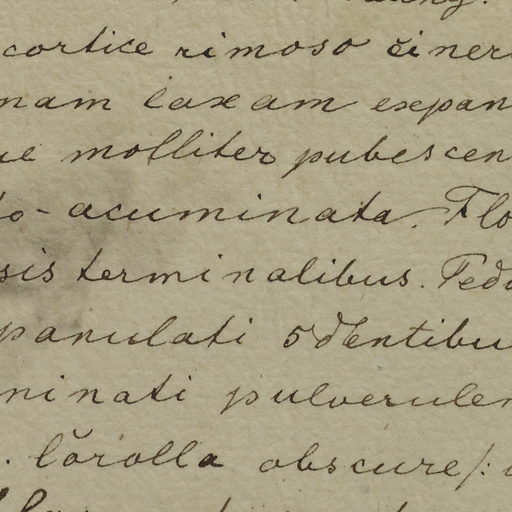 cortice rimoso ciner
nam laxam expan
ue molliter pubescen
to-acuminata. Flo
sis terminalibus. Pedu
panulati 5dentibu
minati pulverulen
. Corolla obscure/: